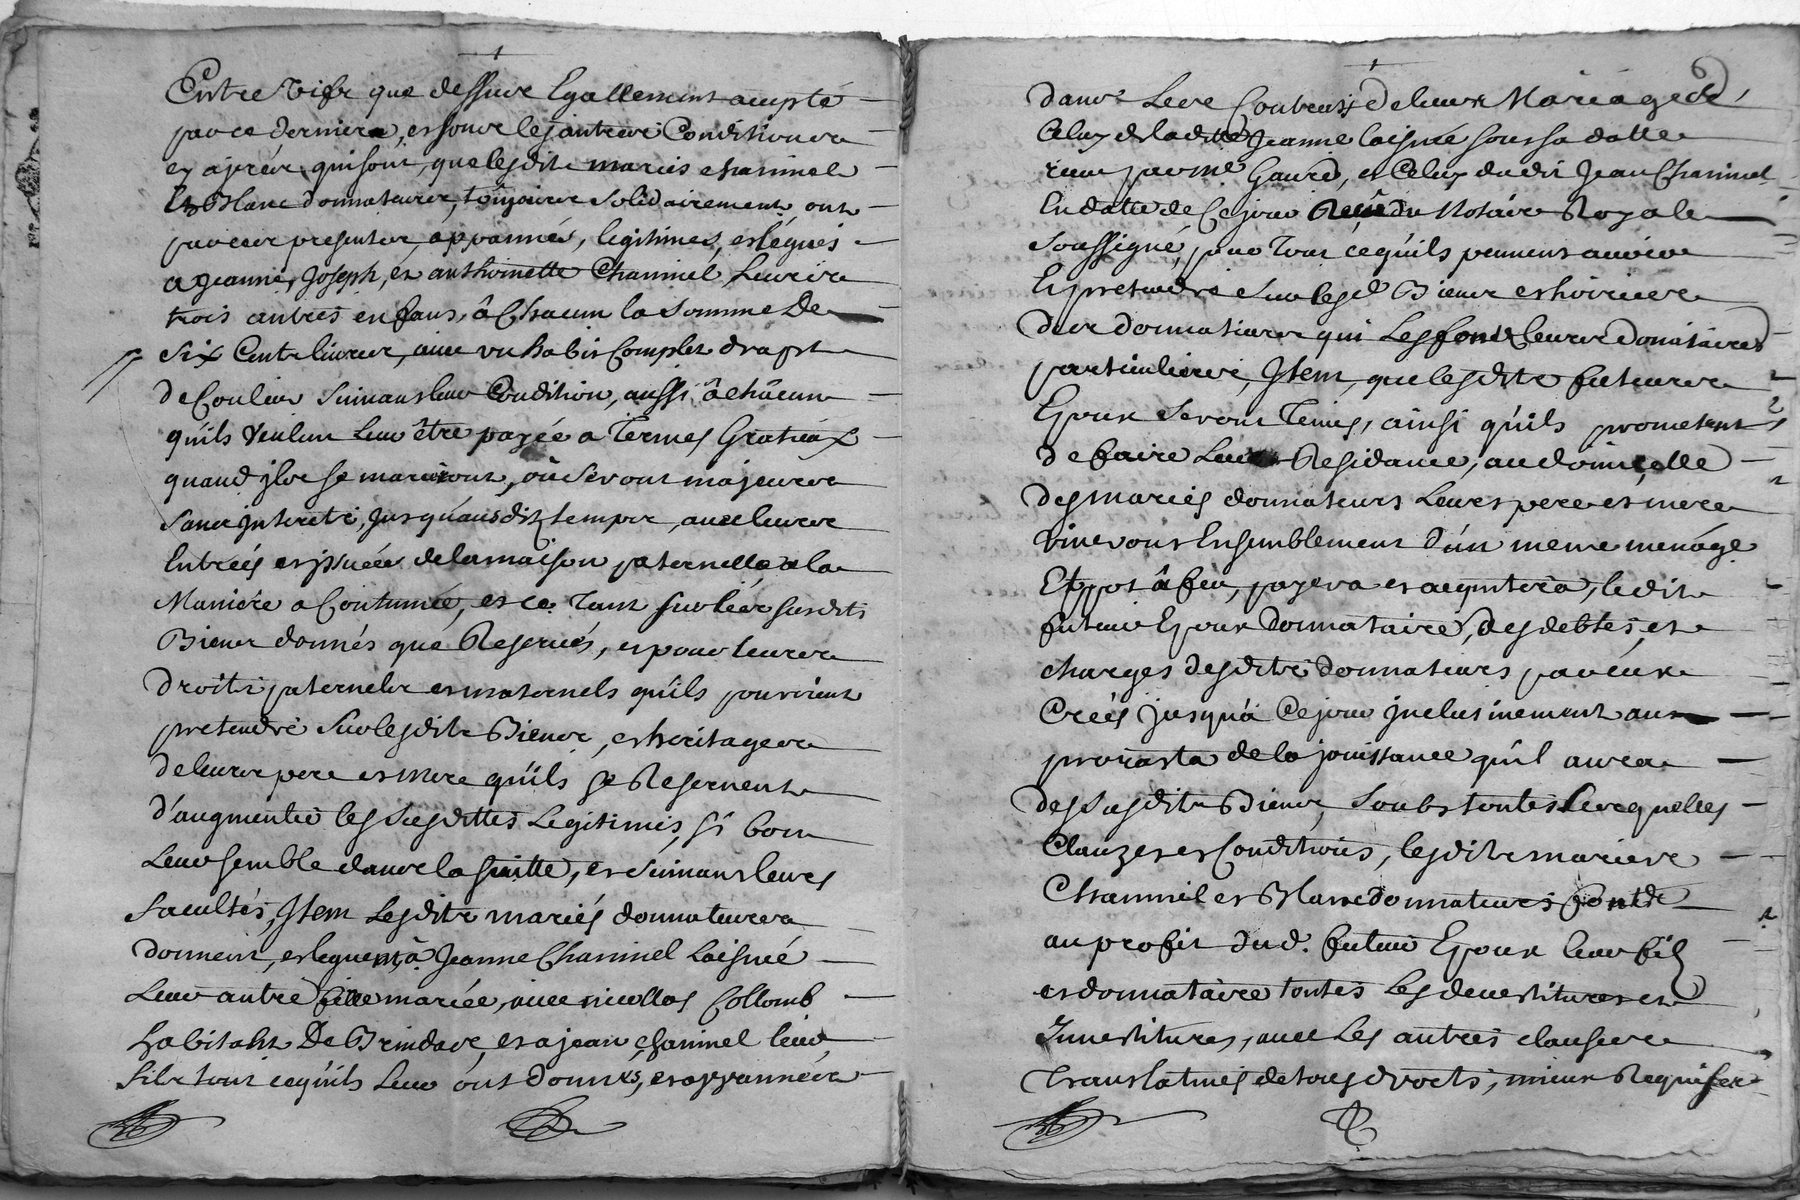 Entre vifs que dessus Egallement acepté
par ce derniere, et sous les autres Conditions
cy aprés, qui sont, que lesdits mariés chaninel
Et Blanc donnateurs, toujours solidairement, ont
par ces presentes, appannés, legitimés, et légués
a Jeanne, Joseph, et anthoinette Chaninel, Leurs
trois autres enfans, â Chacun la somme De
six Cents livres, avec un habit Complet drapt
de Couleur suivant leur Condition, aussi â châcun
qu'ils veulent Leur être payée a Termes Gratieux
quand ils se mariront, où seront majeurs
sans interets, Jusqu'ausdits temps, avec leurs
Entrées et issuées de la maison paternelle, a la
Maniere a Coutumée, et ce Tant sur les susdits
Biens donnés que Reservés, et pour leurs
droits paternels et maternels qu'ils pourroient
pretendre sur lesdits Biens, et heritages
de leurs pere et mere qu'ils se Reservent
d'augmenter les susdittes Legitimes, si bon
Leur semble dans la suitte, et suivant leurs
facultés, Item Lesdits mariés donnateurs
donnent, et leguent, à Jeanne Chaninel Laisnée
Leur autre fille mariée, avec nicollas Collomb
habitant De Brindas, et a jean chaninel leur
fils tout ce qu'ils Leur ont donnés, et appannés
dans Leurs Contrats de leurs Mariage
Celuy de ladite Jeanne laisnée sous sa datte
recu par me Gaure, et Celuy dudit Jean Chaninel
En datte de Ce jour Reçu du Notaire Royale
soussigné, pour Tout ce qu'ils peuvent avoir
Et pretendre sur lesd. Biens et hoiries
des donnateurs qui Les font Leurs Donataires
particuliers, Item, que lesdits futurs
Epoux seront Tenus, ainsi qu'ils prometent
de faire Leur Residance, au domicelle
des mariés donnateurs Leurs pere et mere
vivront Ensemblement d'un meme menage
Et pot â feu, payera et acquitera, ledit
futur Epoux Donnataire, des debtes, et
charges desdits donnateurs par eux
Créés jusqu'à Ce jour Inclusivement au
prorasta de la jouissance qu'il aura
des susdits Biens, soubs toutes Lesquelles
Clauzes et Conditions, lesdits mariés
Chaninel et Blanc donnateurs font
au profit dud. futur Epoux leur fils
et donnataire toutes Les devestitures et
Investitures, avec Les autres clauses
Translatives de tous droits, mieux Requises